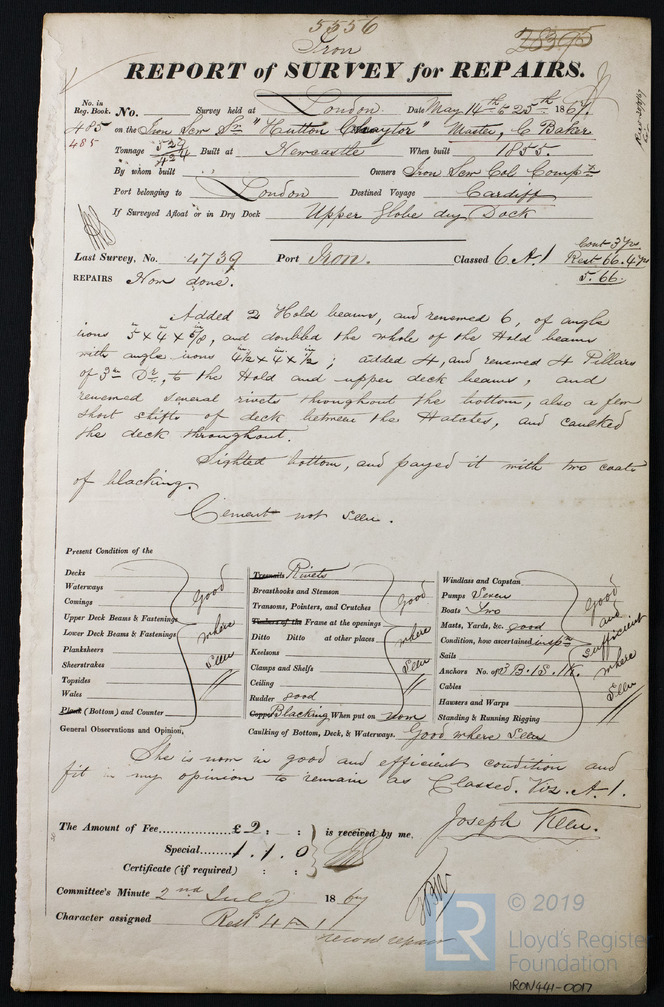 5556
Iron
28395
REPORT of SURVEY for REPAIRS.
No. in Reg. Book.
485
485
No. Survey held at London Date May 14th to 25th 1867
on the Iron Scw Sr "Hutton Chaytor" Master, C Baker
Tonnage 529 Built at Newcastle When built 1855.
By whom built Owners Iron Scw Col Compy
Port belonging to London Destined Voyage Cardiff
If Surveyed Afloat or in Dry Dock Upper Globe dry Dock
Last Survey, No. 4739 Port Iron. Classed 6 A.1
Rest 66. 4 yrs
5. 66.
REPAIRS Now done.
Added 2 Hold beams, and renewed 6, of angle
irons 5 x 4 x 5/8, and doubled the whole of the Hold beams
with angle irons 4 1/2 x 4 x 1/2; added 4, and renewed 4 Pillars
of 3in Dr, to the Hold and upper deck beams, and
renewed several rivets throughout the bottom, also a few
short shifts of deck between the Hatches, and caulked
the deck throughout.
Sighted bottom, and payed it with two coats
of blacking.
Cement not seen.
Present Condition of the
Decks
Waterways
Comings
Upper Deck Beams & Fastenings
Lower Deck Beams & Fastenings
Planksheers
Sheerstrakes
Topsides
Wales
Plank (Bottom) and Counter
Good
where
seen
Treenails Rivets
Breasthooks and Stemson
Transoms, Pointers, and Crutches
Timbers of the Frame at the openings
Ditto Ditto at other places
Keelsons
Clamps and Shelfs
Ceiling
Rudder good
Copper Blacking When put on now
Good
where
seen
Windlass and Capstan
Pumps Seven
Boats Two
Masts, Yards, &c. good
Condition, how ascertained inspn
Sails
Anchors No. of 3 B. 1 S. 1 K.
Cables
Hawsers and Warps
Standing & Running Rigging
Good
and
sufficient
where
seen
General Observations and Opinion,
Caulking of Bottom, Deck, & Waterways. Good where seen
She is now in good and efficient condition and
fit in my opinion to remain as Classed. Viz. A.1.
Joseph Keen.
The Amount of Fee............£ 2 : :
Special...... 1. 1. 0
Certificate (if required) : :
is received by me,
Committee's Minute 2nd July 1867
Character assigned
record repairs
LR
© 2019
Lloyd's Register
Foundation
IRON441-0017